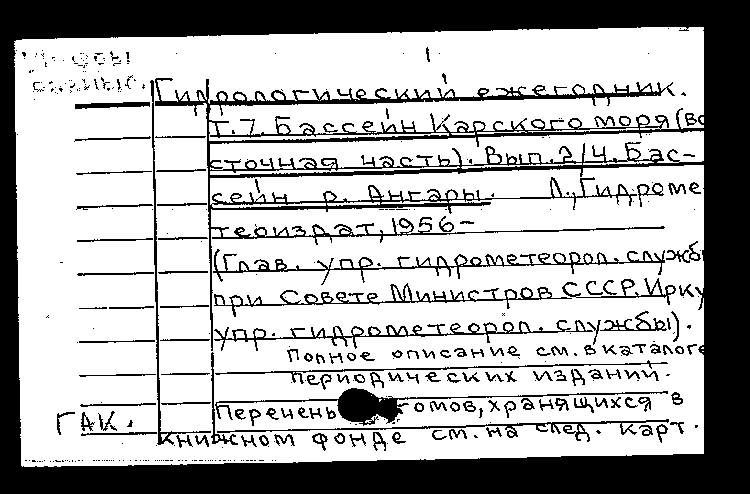 1
Гидрологический ежегодник.
Т.7. Бассейн Карского моря (во
сточная часть). Вып. 2/4. Бас-
сейн р. Ангары. Л., Гидроме
теоиздат, 1956-
(Глав. упр. гидрометеорол. службы
при Совете Министров СССР. Ирку
упр. гидрометеорол. службы).
Полное описание см. в каталоге
периодических изданий.
Перечень томов, хранящихся в
ГАК. книжном фонде см. на след. карт.